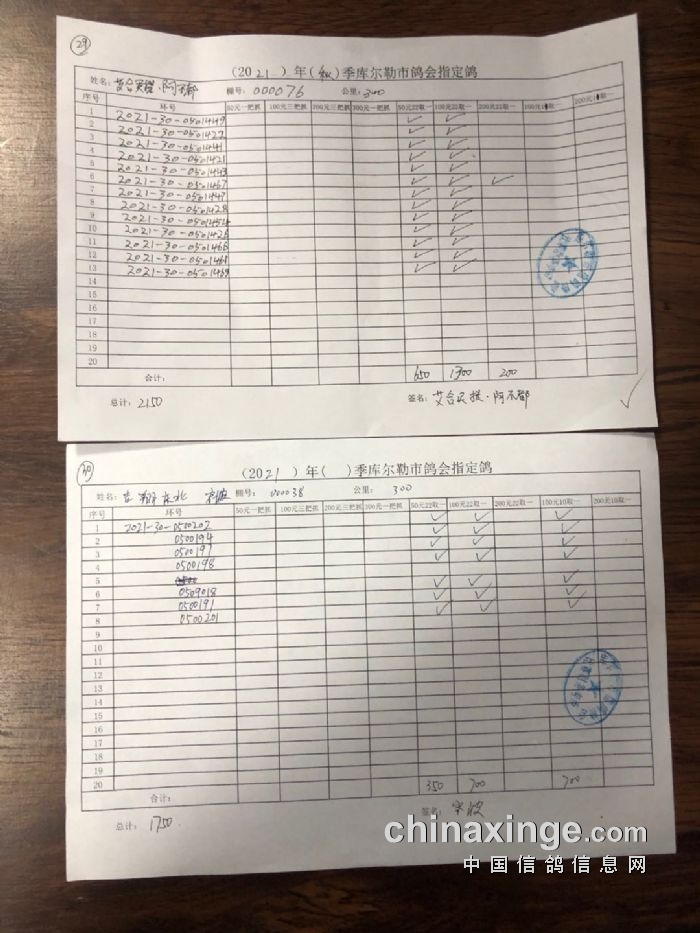 29
(2021)年(秋)季库尔勒市鸽会指定鸽
姓名: 棚号: 000076 公里: 300
序号 环号 50元一把抓 100元三把抓 200元三把抓 300元一把抓 50元22取一 100元22取一 200元22取一
1 2021-30-0501449 ✓ ✓
2 2021-30-0501427 ✓ ✓
3 2021-30-0501441 ✓ ✓
4 2021-30-0501421 ✓ ✓
5 2021-30-0501443 ✓ ✓
6 2021-30-0501467 ✓ ✓ ✓
7 2021-30-0501447 ✓ ✓
8 2021-30-0501428 ✓ ✓
9 2021-30-0501454 ✓ ✓
10 2021-30-0501426 ✓ ✓
11 2021-30-0501466 ✓ ✓
12 2021-30-0501461 ✓ ✓
13 2021-30-0501469 ✓ ✓
14
15
16
17
18
19
20
合计: 650 1300 200
总计: 2150 签名: 艾合买提·阿不都
30
(2021)年( )季库尔勒市鸽会指定鸽
姓名: 棚号: 000038 公里: 300
序号 环号 50元一把抓 100元三把抓 200元三把抓 300元一把抓 50元22取一 100元22取一 200元22取一 100元10取一 200元10取一
1 2021-30-0500202 ✓ ✓ ✓
2 0500194 ✓ ✓ ✓
3 0500197 ✓ ✓ ✓
4 0500198 ✓ ✓ ✓
5
6 0509018 ✓ ✓ ✓
7 0500191 ✓ ✓ ✓
8 0500201 ✓ ✓ ✓
9
10
11
12
13
14
15
16
17
18
19
20
合计: 350 700 700
总计: 1750 签名:
chinaxinge.com
中国信鸽信息网